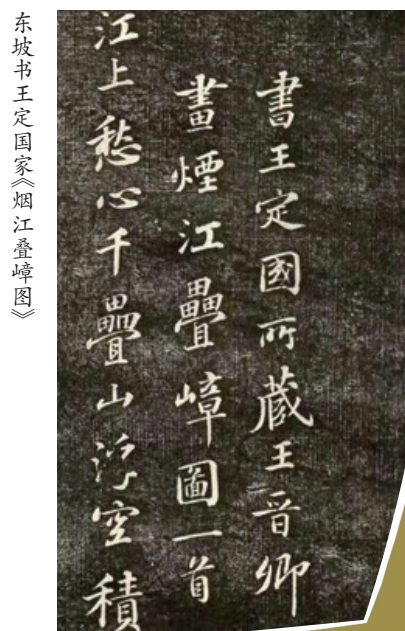 东坡书王定国家《烟江叠嶂图》
書王定國所蔵王晋卿
畫煙江疊嶂圖一首
江上愁心千疊山浮空積